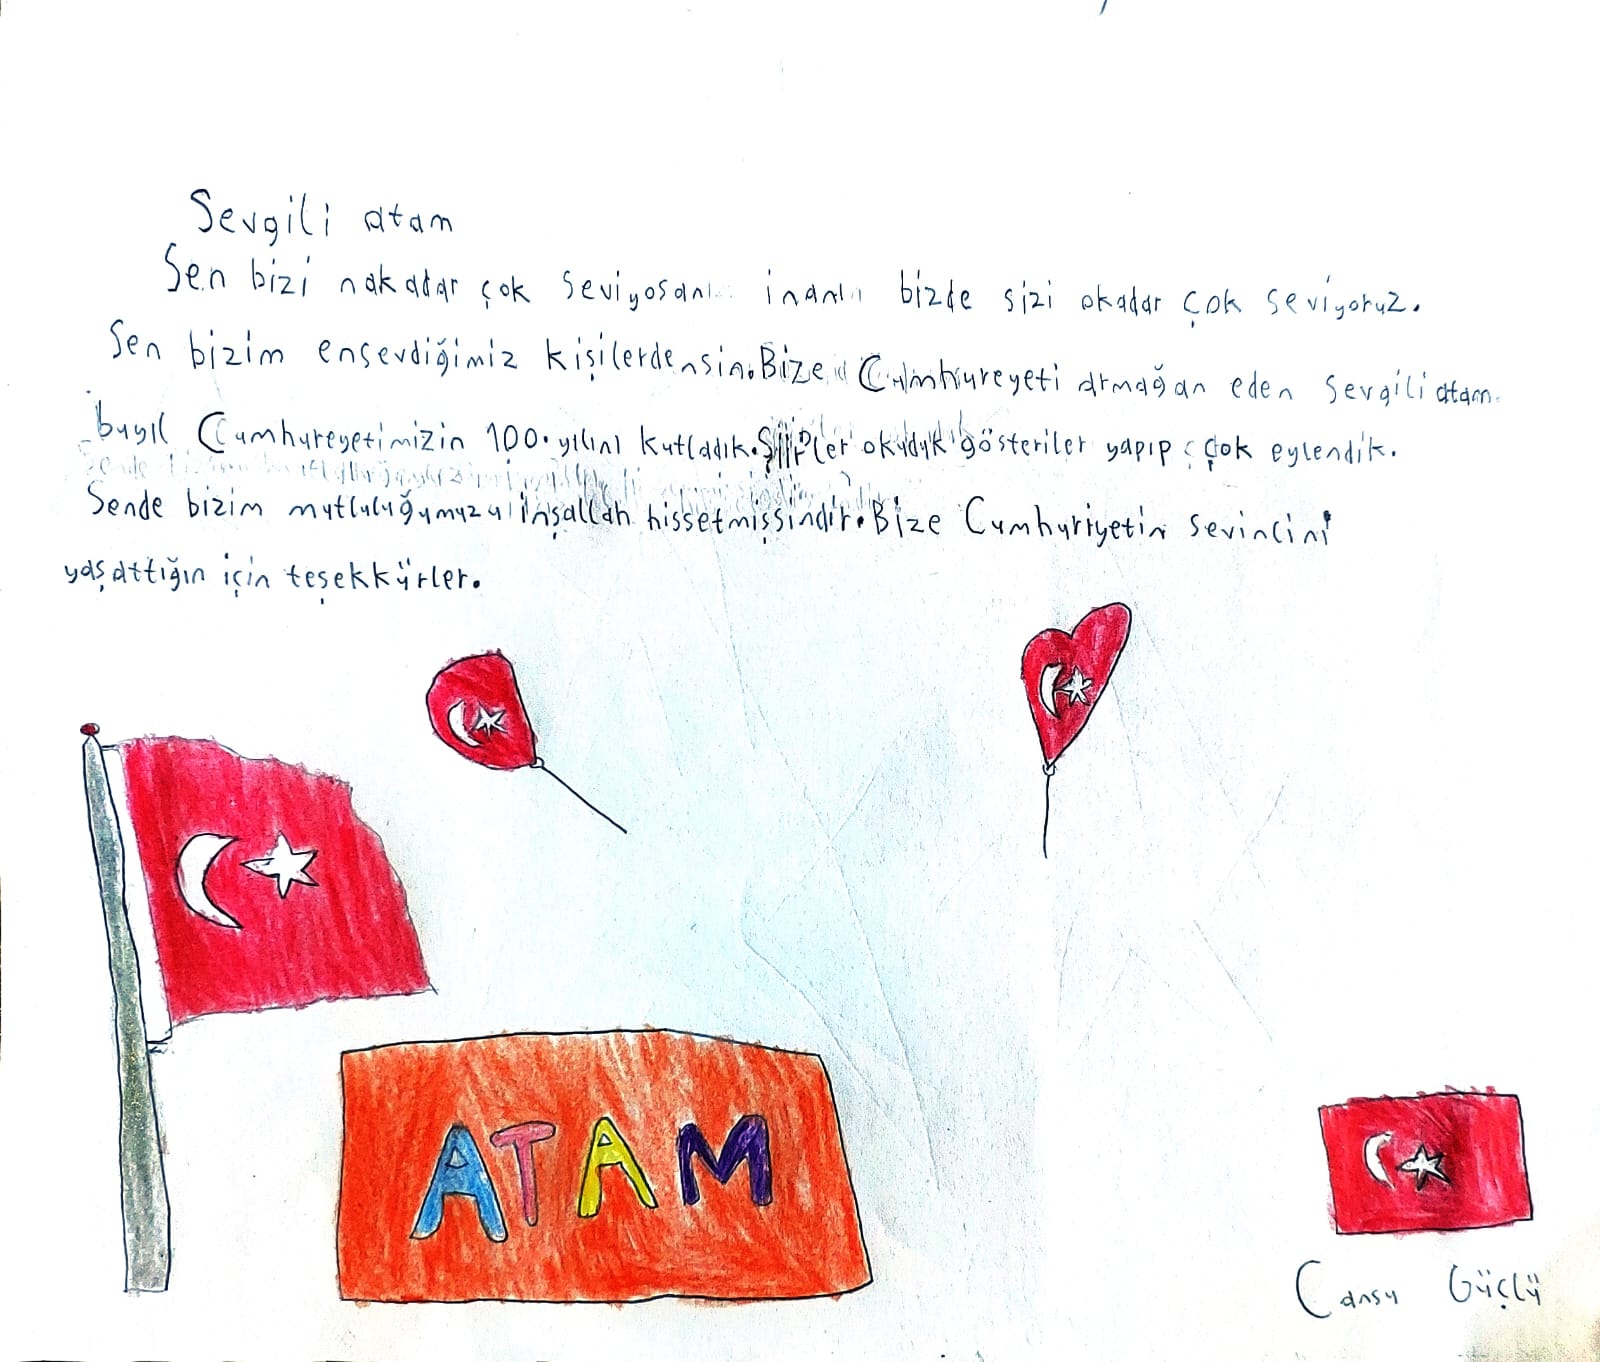 Sevgili atam
Sen bizi nakadar çok seviyosan inan bizde sizi okadar çok seviyoruz.
Sen bizim ensevdiğimiz kişilerdensin. Bize Cumhureyeti armağan eden sevgili atam.
buyıl Cumhureyetimizin 100. yılını kutladık. Şiirler okuduk gösteriler yapıp çok eylendik.
Sende bizim mutluluğumuzu inşallah hissetmişsindir. Bize Cumhuriyetin sevincini
yaşattığın için teşekkürler.
ATAM
Cansu Güçlü